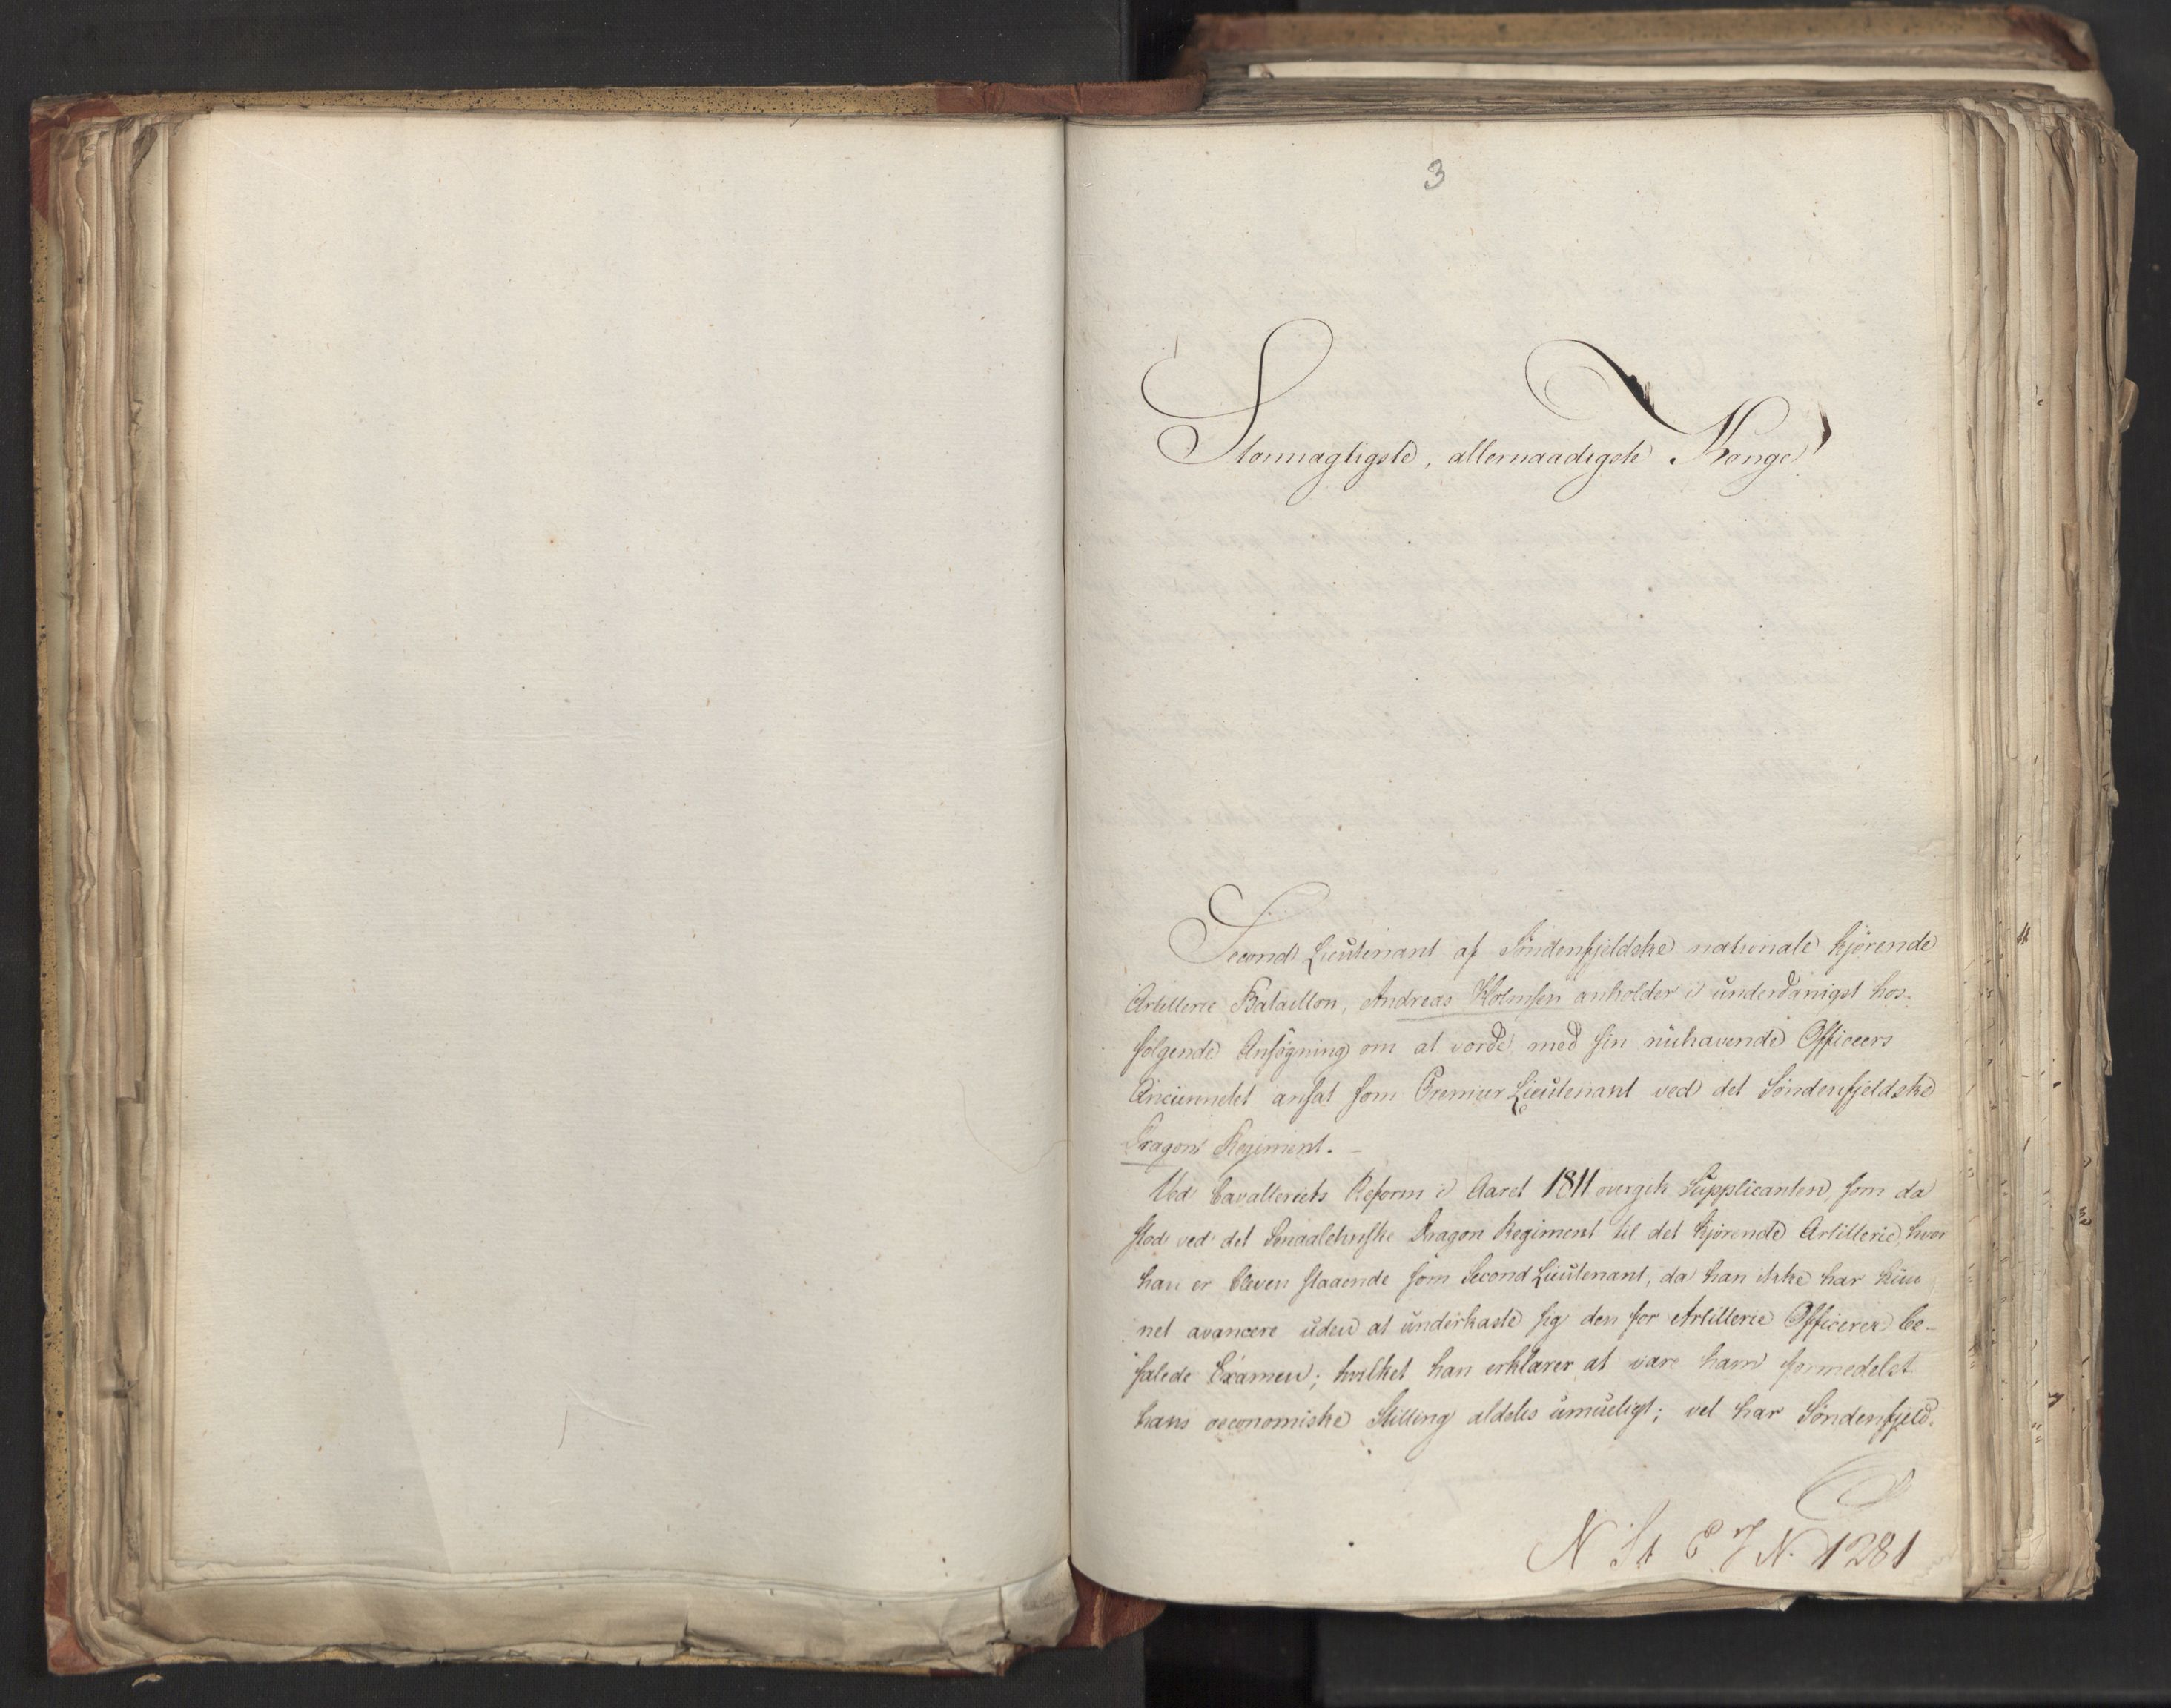 3
Stormægtigste, allernaadigste Konge!
Second Lieutenant af Søndenfjeldske nationale kjørende
Artillerie Bataillon, Andreas Holmsen anholder i underdanigst hos-
følgende Ansøgning om at vorde med sin nuhavende Officeers
Anciennetet ansat som Premier Lieutenant ved det Søndenfjeldske
Dragon Regiment. -
Ved Cavalleriets Reform i Aaret 1811 overgik Supplicanten, som da
stod ved det Smaalehnske Dragon Regiment til det kjørende Artillerie, hvor
han er bleven staaende som Second Lieutenant, da han ikke har kun
net avancere uden at underkaste sig den for Artillerie Officerer be-
falede Examen; hvilket han erklærer at være ham formedelst
hans oeconomiske Stilling aldeles umueligt; vel har Søndenfjeld-
N St E J N. 1281